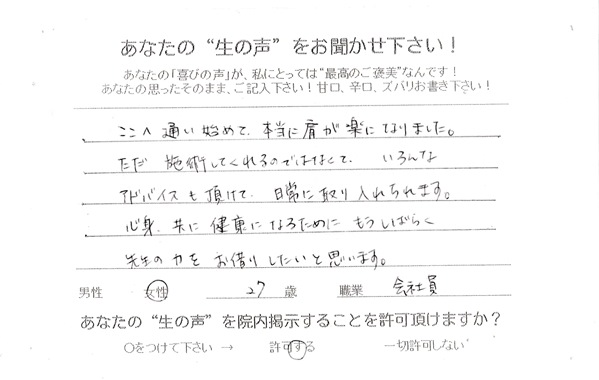 あなたの“生の声”をお聞かせ下さい！
あなたの「喜びの声」が、私にとっては“最高のご褒美”なんです！
あなたの思ったそのまま、ご記入下さい！甘口、辛口、ズバリお書き下さい！
ここへ通い始めて、本当に肩が楽になりました。
ただ施術してくれるのではなくて、いろんな
アドバイスも頂けて、日常に取り入れられます。
心身、共に健康になるために もうしばらく
先生の力をお借りしたいと思います。
男性 女性 27 歳 職業 会社員
あなたの“生の声”を院内掲示することを許可頂けますか？
○をつけて下さい → 許可する 一切許可しない